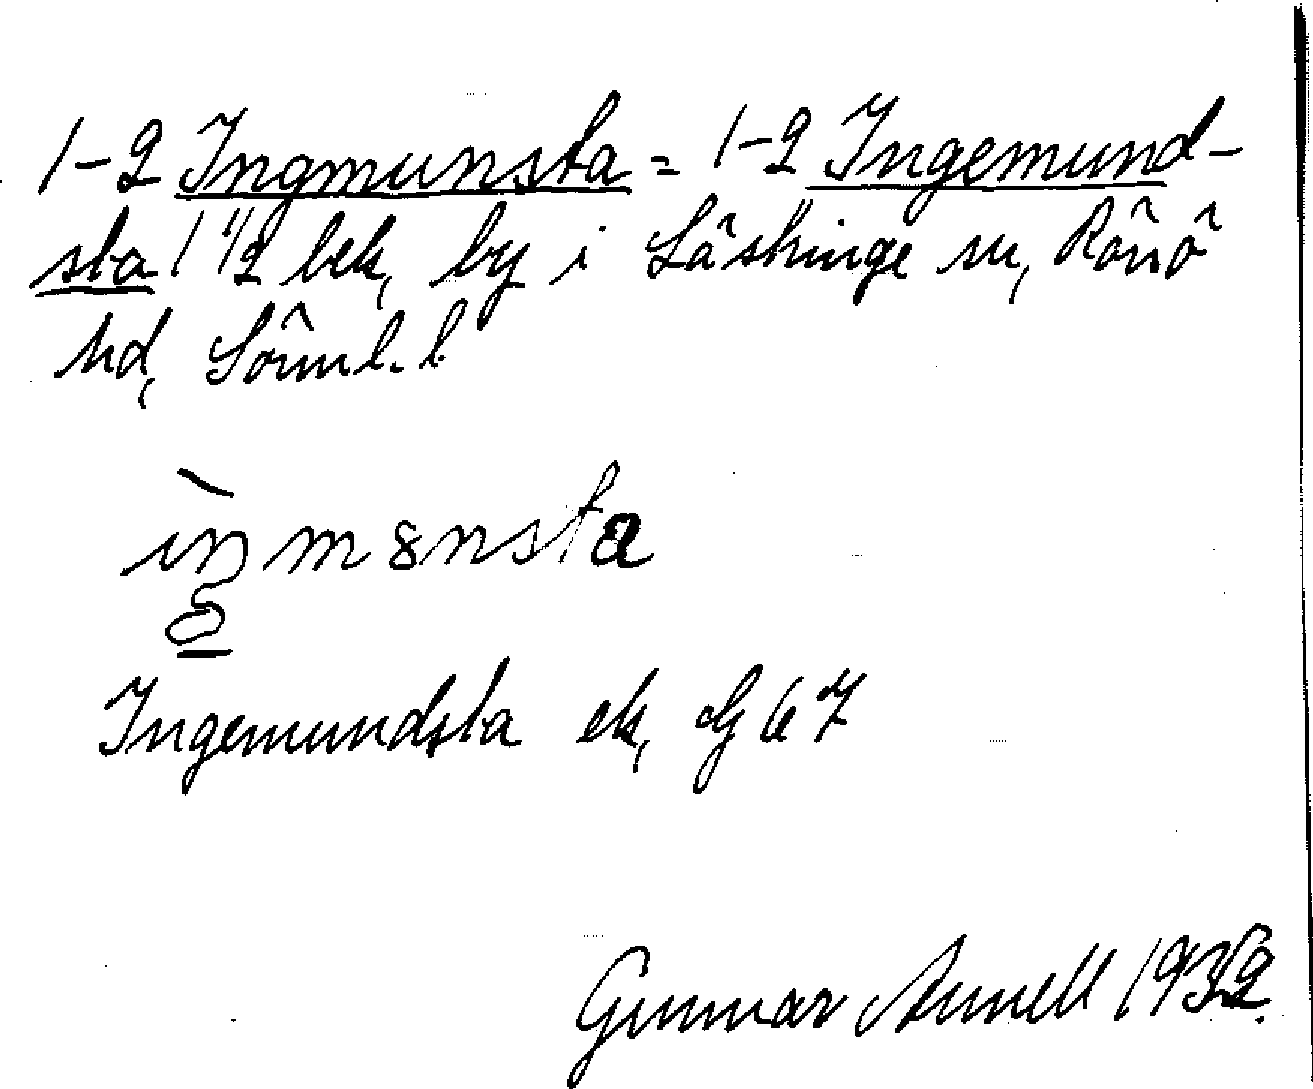 1-2 Ingmunsta = 1-2 Ingemund-
sta 1 1/2 bek, by i Lâstringe sn, Rônô
hd, Sôrml. l.
ìŋmunsta
Ingemundsta ek, G 67
Gunnar Annell 1932.